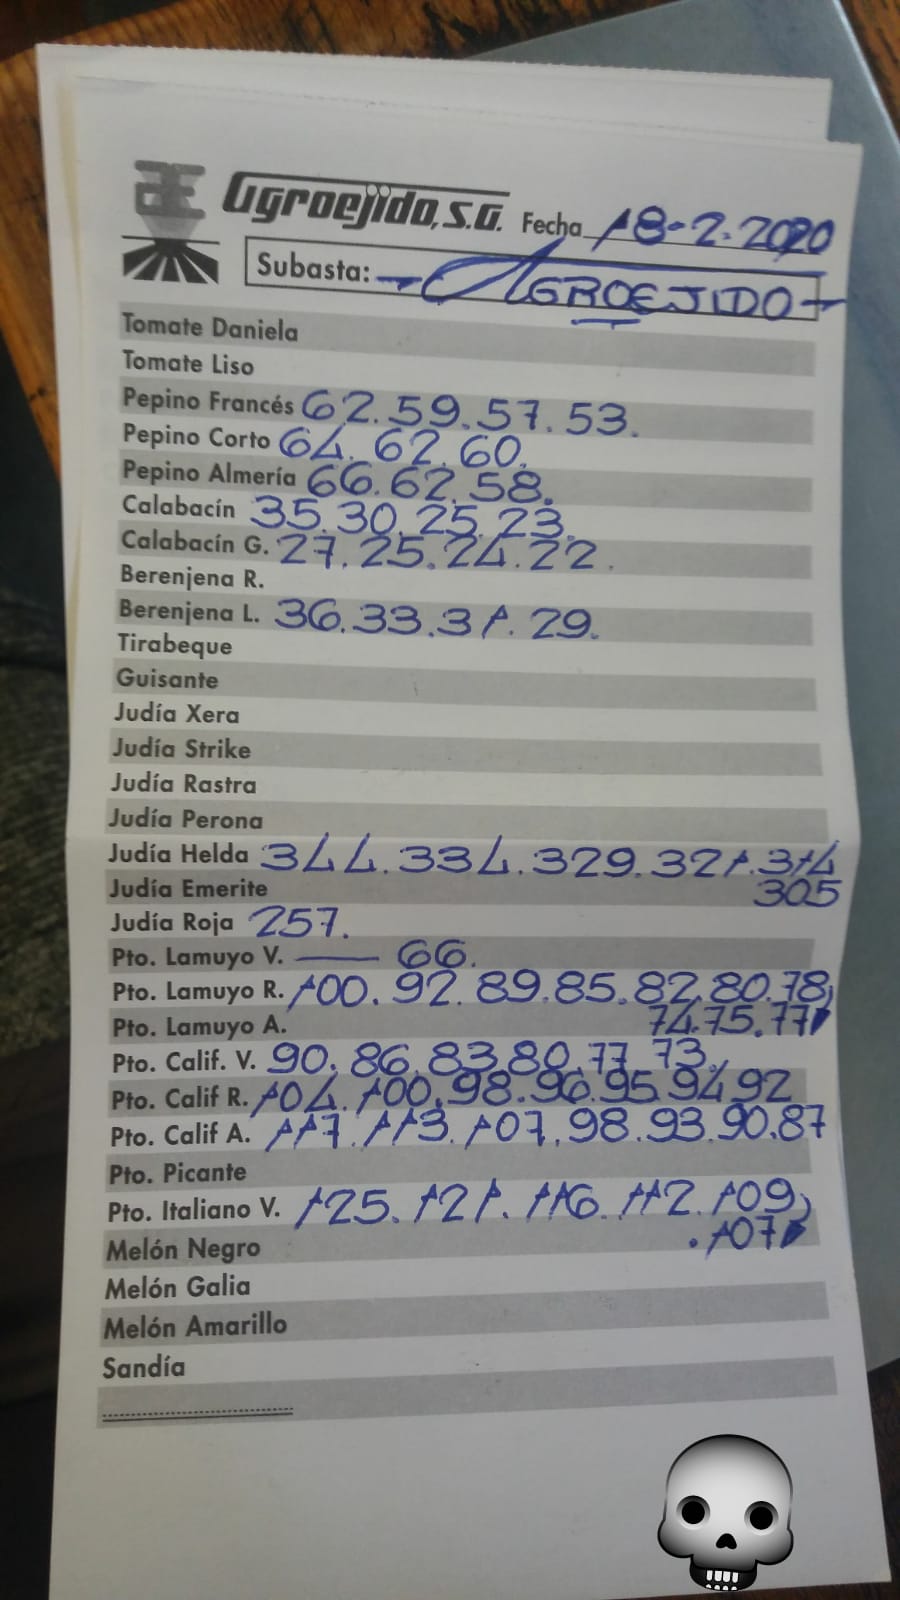 Agroejido, S.A. Fecha 18-2-2020
Subasta: - AGROEJIDO -
Tomate Daniela
Tomate Liso
Pepino Francés 62.59.57.53.
Pepino Corto 64.62.60.
Pepino Almería 66.62.58.
Calabacín 35.30.25.23.
Calabacín G. 27.25.24.22.
Berenjena R.
Berenjena L. 36.33.31.29.
Tirabeque
Guisante
Judía Xera
Judía Strike
Judía Rastra
Judía Perona
Judía Helda 344.334.329.321.314
305
Judía Emerite
Judía Roja 257.
Pto. Lamuyo V. — 66.
Pto. Lamuyo R. 100.92.89.85.82.80.78,
74.75.77
Pto. Lamuyo A.
Pto. Calif. V. 90.86.83.80.77.73.
Pto. Calif R. 104.100.98.96.95.94.92
Pto. Calif A. 117.113.107.98.93.90.87
Pto. Picante
Pto. Italiano V. 125.121.116.112.109,
.107
Melón Negro
Melón Galia
Melón Amarillo
Sandía